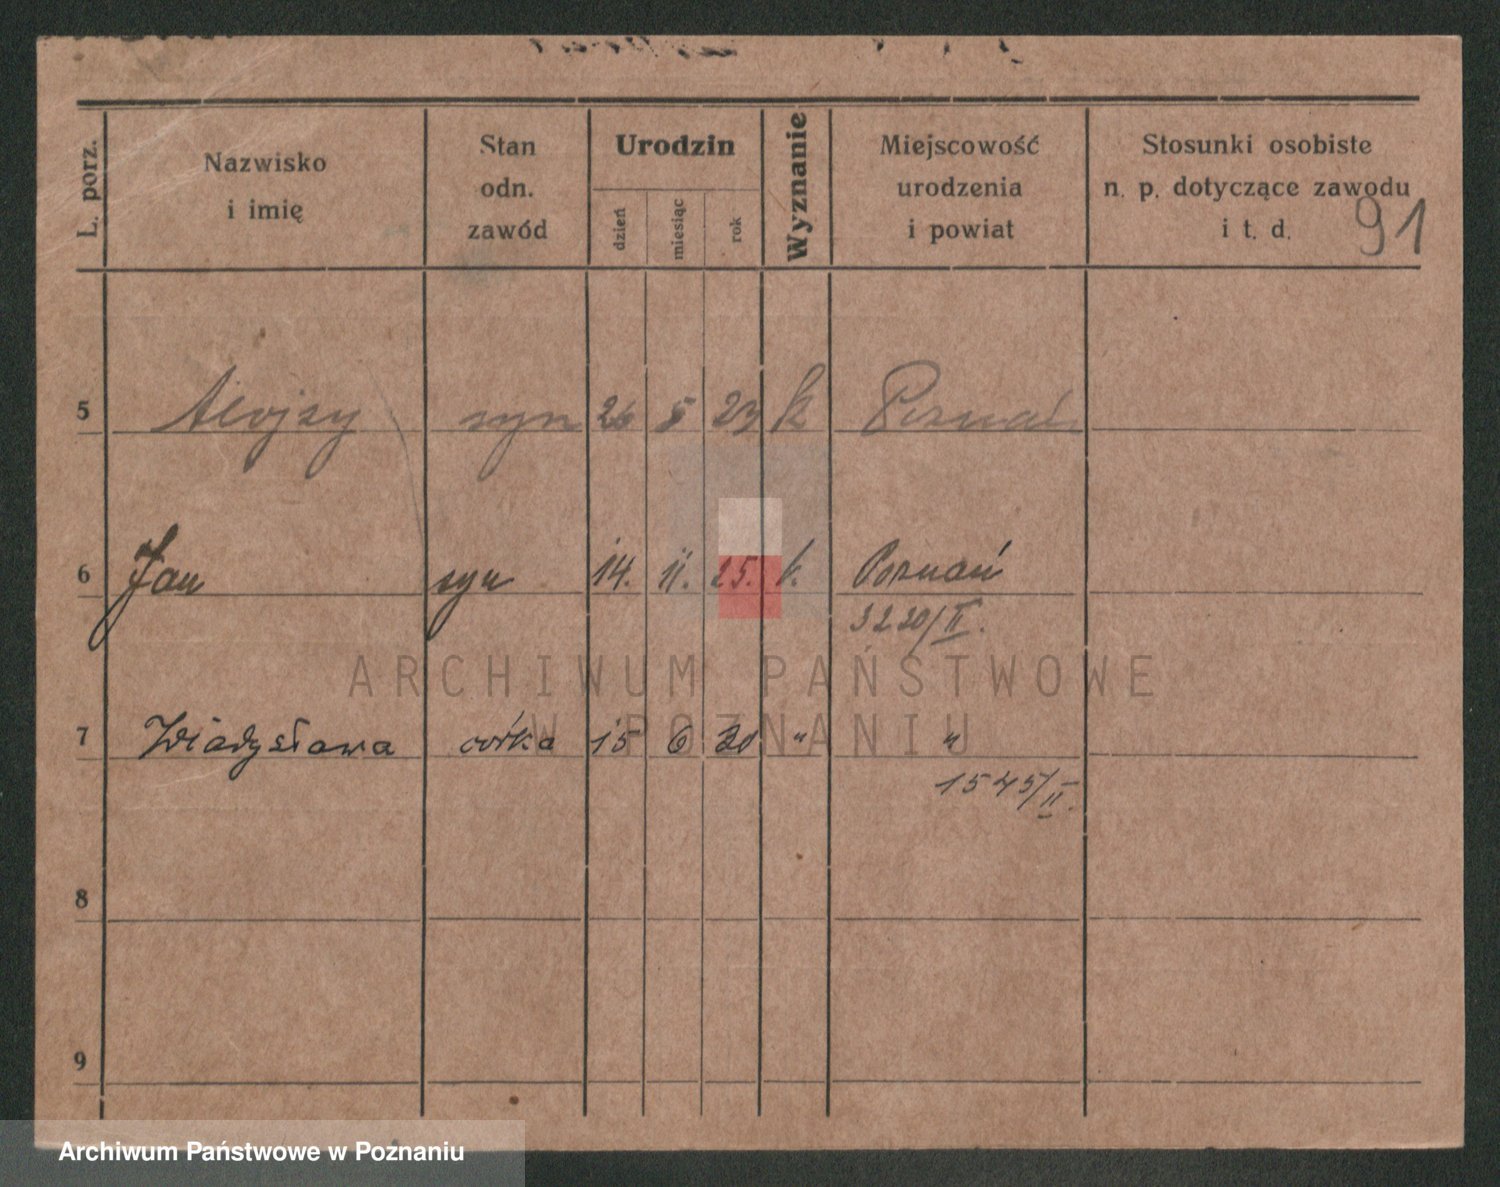 L. porz. Nazwisko i imię Stan odn. zawód Urodzin dzień miesiąc rok Wyznanie Miejscowość urodzenia i powiat Stosunki osobiste n. p. dotyczące zawodu i t. d.
91
5 Alojzy syn 26 5 23 k Poznań
6 Jan syn 14. 11. 25. k. Poznań
3220/II.
7 Władysława córka 15 6 30 " "
1545/II.
8
9
ARCHIWUM PAŃSTWOWE
W POZNANIU
Archiwum Państwowe w Poznaniu